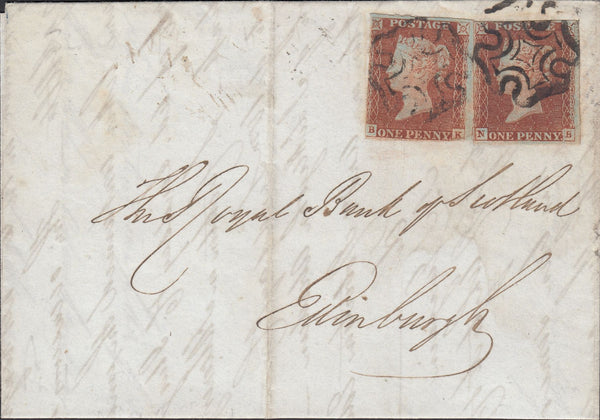 POSTAGE
POSTAGE
B ONE PENNY K
N ONE PENNY B
The Royal Bank of Scotland
Edinburgh